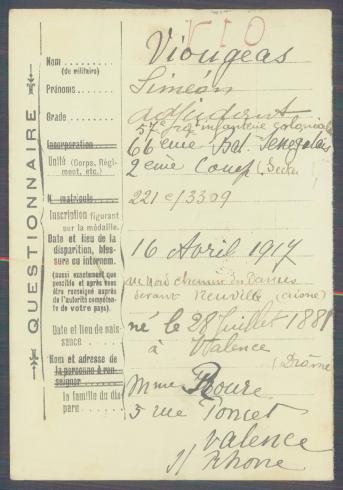 V10
QUESTIONNAIRE
Nom . . . . . . . . Viougeas
(du militaire)
Prénoms . . . . . . . Siméon
Grade . . . . . . . . adjudant
57e rgt infanterie coloniale
Incorporation
66eme Bat. Senegalais
Unité (Corps, Régiment, etc.)
2eme Comp
N° matricule . . . . . 221 c/3309
Inscription figurant
sur la médaille.
Date et lieu de la
disparition, blessure ou internem.
16 Avril 1917
(aussi exactement que
possible et après vous
être renseigné auprès
de l'autorité compétente
de votre pays).
au Nord chemin du Dames
devant Neuville (aisne)
Date et lieu de naissance . . . . né le 28 Juillet 1881
à Valence
(Drôme
Nom et adresse de
la personne à renseigner
la famille du disparu . . .
Mme Roure
5 rue Poncet
Valence
s/ Rhone